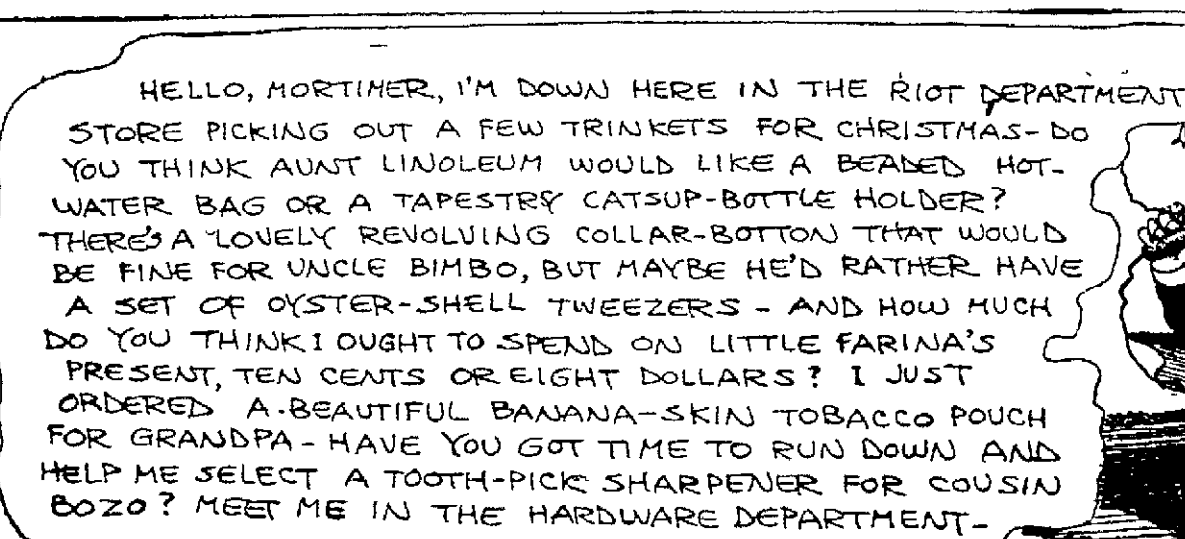 HELLO, MORTIMER, I'M DOWN HERE IN THE RIOT DEPARTMENT
STORE PICKING OUT A FEW TRINKETS FOR CHRISTMAS- DO
YOU THINK AUNT LINOLEUM WOULD LIKE A BEADED HOT-
WATER BAG OR A TAPESTRY CATSUP-BOTTLE HOLDER?
THERE'S A LOVELY REVOLVING COLLAR-BOTTON THAT WOULD
BE FINE FOR UNCLE BIMBO, BUT MAYBE HE'D RATHER HAVE
A SET OF OYSTER-SHELL TWEEZERS - AND HOW MUCH
DO YOU THINK I OUGHT TO SPEND ON LITTLE FARINA'S
PRESENT, TEN CENTS OR EIGHT DOLLARS? I JUST
ORDERED A BEAUTIFUL BANANA-SKIN TOBACCO POUCH
FOR GRANDPA - HAVE YOU GOT TIME TO RUN DOWN AND
HELP ME SELECT A TOOTH-PICK SHARPENER FOR COUSIN
BOZO? MEET ME IN THE HARDWARE DEPARTMENT-